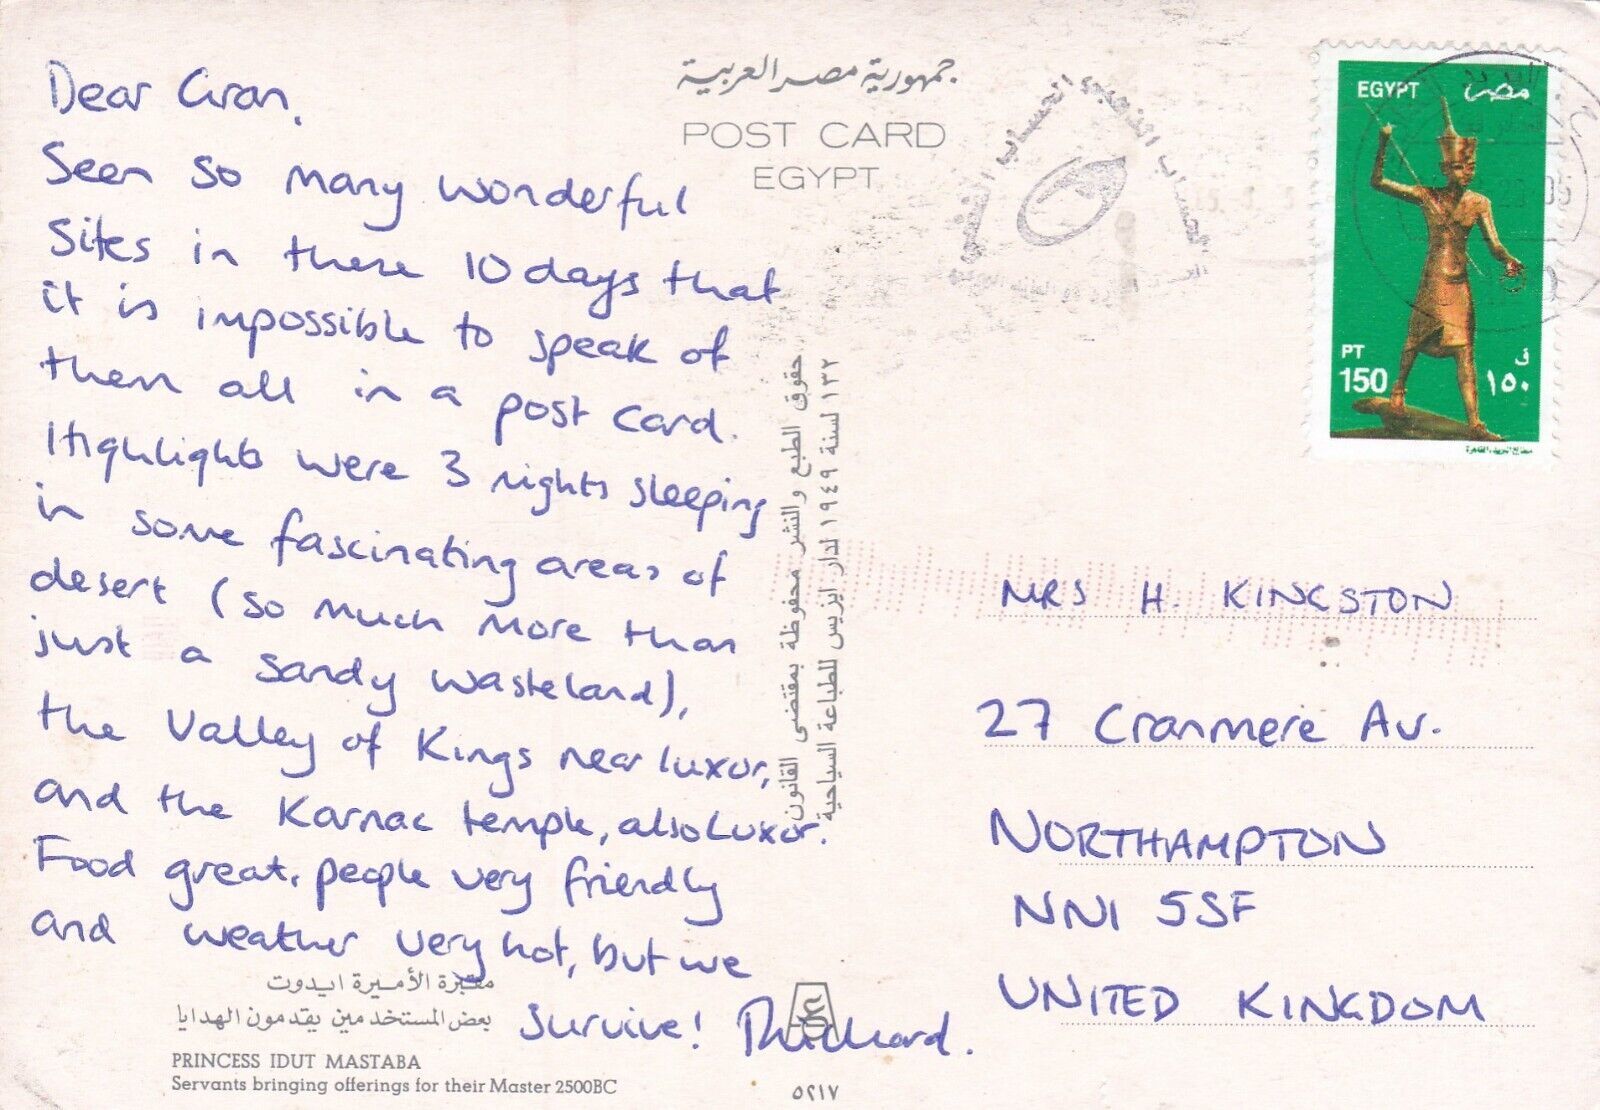 Dear Gran,
Seen so many wonderful
sites in these 10 days that
it is impossible to speak of
them all in a post card.
Highlights were 3 nights sleeping
in some fascinating areas of
desert (so much more than
just a sandy wasteland),
the Valley of Kings near Luxor,
and the Karnac temple, also Luxor.
Food great, people very friendly
and weather very hot, but we
survive! Richard.
مقبرة الأميرة ايدوت
بعض المستخدمين يقدمون الهدايا
PRINCESS IDUT MASTABA
Servants bringing offerings for their Master 2500BC
جمهورية مصر العربية
POST CARD
EGYPT
حقوق الطبع والنشر محفوظة بمقتضى القانون
١٣٢ لسنة ١٩٤٩ لدار ايزيس للطباعة السياحية
٥٢١٧
EGYPT مصر
PT ق
150 ١٥٠
MRS H. KINGSTON
27 Cranmere Av.
NORTHAMPTON
NN1 5SF
UNITED KINGDOM